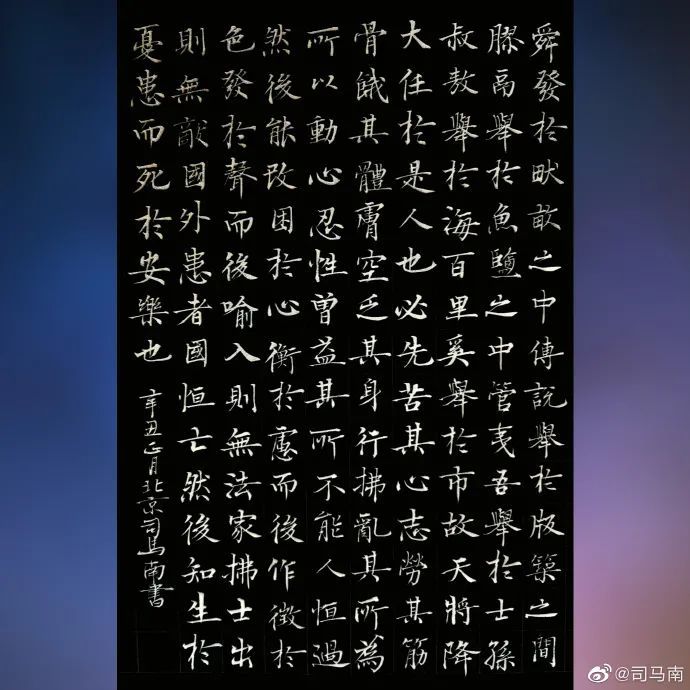 舜發於畎畝之中傅說舉於版築之間
膠鬲舉於魚鹽之中管夷吾舉於士孫
叔敖舉於海百里奚舉於市故天將降
大任於是人也必先苦其心志勞其筋
骨餓其體膚空乏其身行拂亂其所為
所以動心忍性曾益其所不能人恒過
然後能改困於心衡於慮而後作徵於
色發於聲而後喻入則無法家拂士出
則無敵國外患者國恒亡然後知生於
憂患而死於安樂也
辛丑正月北京司馬南書
@司马南